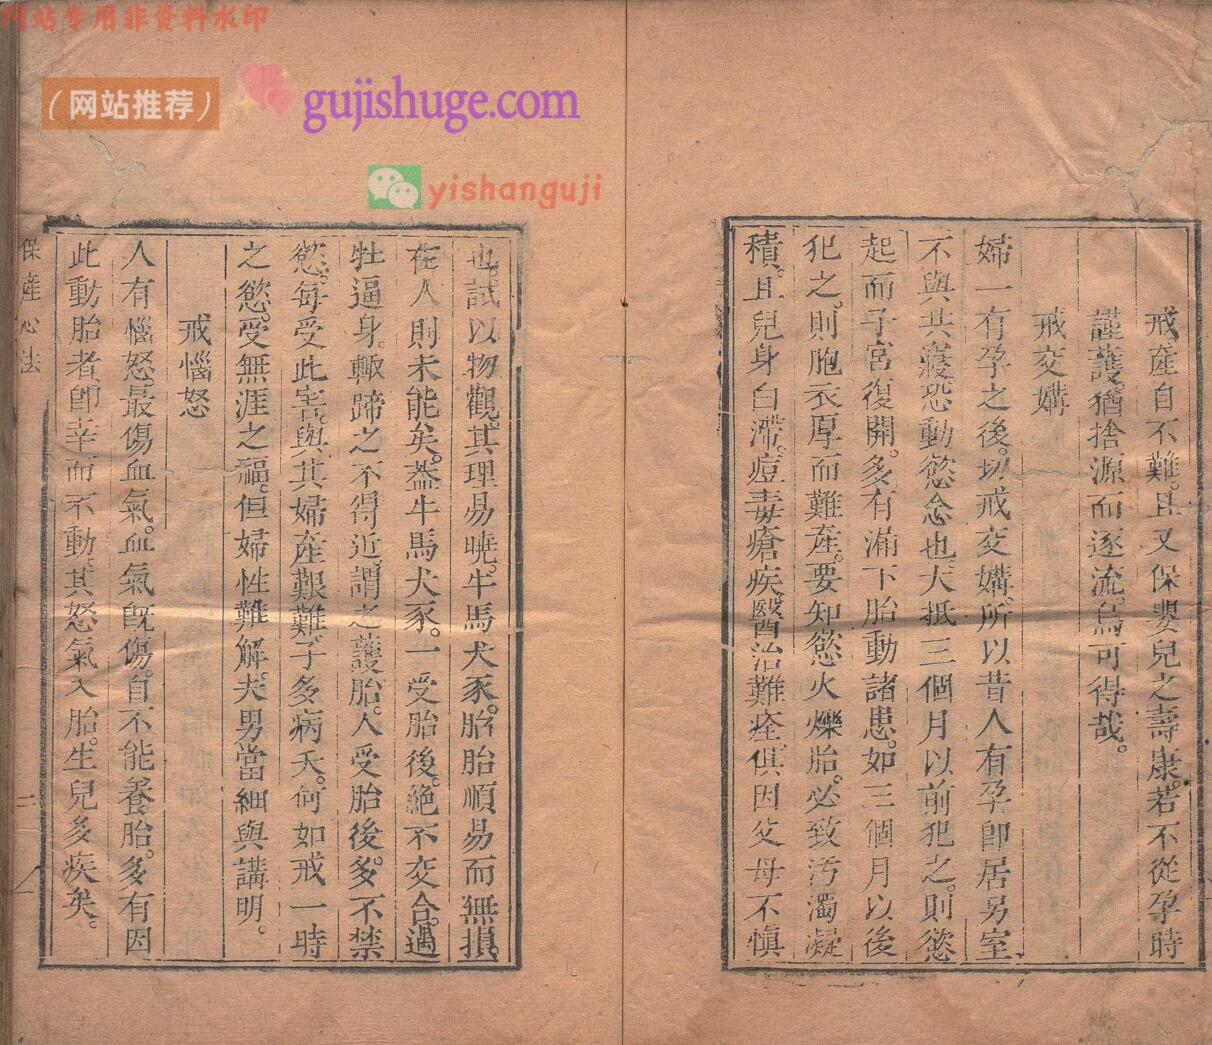 网站专用非资料水印
（网站推荐）
gujishuge.com
yishanguji
戒產自不難。且又保嬰兒之壽康。若不從孕時
謹護。猶捨源而逐流。烏可得哉。
戒交媾
婦一有孕之後。切戒交媾。所以昔人有孕卽居另室。
不與共寢。恐動慾念也。大抵三個月以前犯之。則慾
起而子宮復開。多有漏下胎動諸患。如三個月以後
犯之。則胞衣厚而難產。要知慾火爍胎。必致汚濁凝
積。且兒身白滯。痘毒瘡疾。醫治難痊。俱因父母不慎
也。試以物觀。其理易曉。牛馬犬豕。胎胎順易而無損。
在人則未能矣。葢牛馬犬豕。一受胎後。絶不交合。遇
牡逼身。輙蹄之不得近。謂之護胎。人受胎後。多不禁
慾。每受此害。與其婦產艱難。子多病夭。何如戒一時
之慾。受無涯之福。但婦性難解。夫男當細與講明。
戒惱怒
人有惱怒。最傷血氣。血氣旣傷。自不能養胎。多有因
此動胎者。卽幸而不動。其怒氣入胎。生兒多疾矣。
保產心法
三